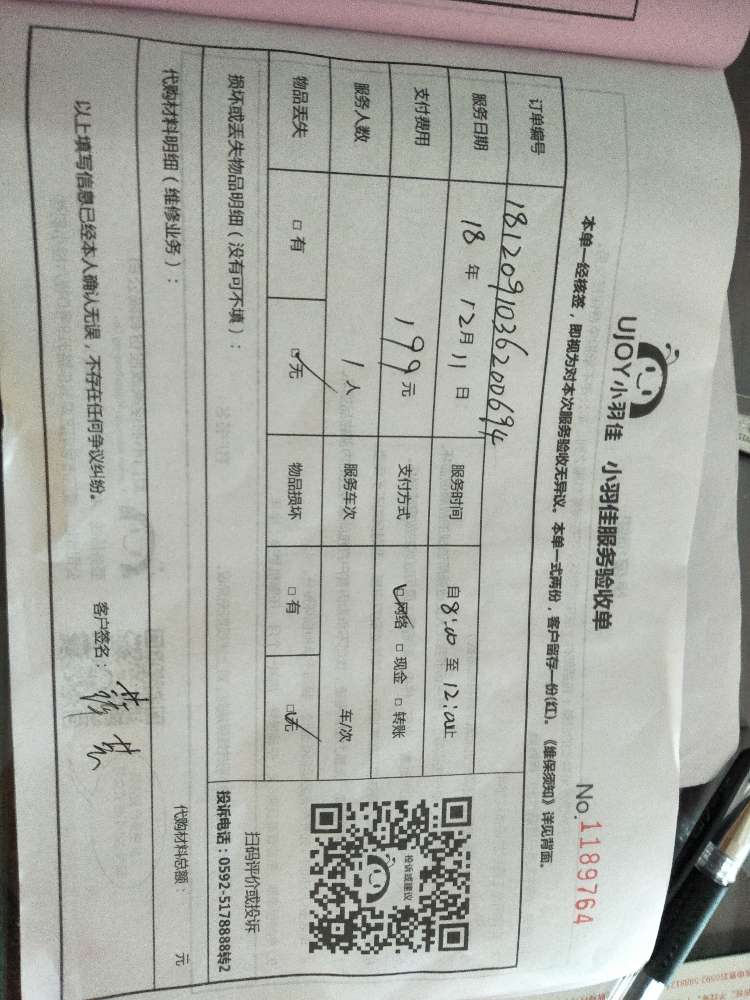 UJOY小羽佳 小羽佳服务验收单
No.1189764
本单一经核签，即视为对本次服务验收无异议。本单一式两份，客户留存一份(红)。《维保须知》详见背面。
订单编号 1812091036200694
服务日期 18年12月11日 服务时间 自8:00至12:00止
支付费用 199元 支付方式 ☑网络 □现金 □转账
服务人数 1人 服务车次 车/次
物品丢失 □有 ☑无 物品损坏 □有 ☑无
投诉或建议
扫码评价或投诉
投诉电话：0592-5178888转2
损坏或丢失物品明细（没有可不填）：
代购材料明细（维修业务）：
代购材料总额： 元
以上填写信息已经本人确认无误，不存在任何争议纠纷。
客户签名：